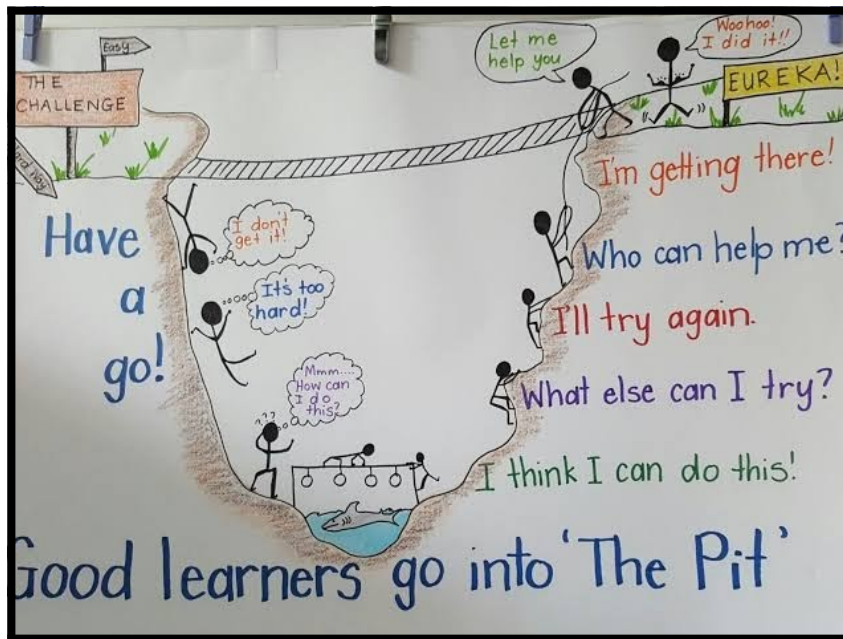 Easy
THE
CHALLENGE
Way
Let me
help you
Woohoo!
I did it!!
EUREKA!
Have
a
go!
I don't
get it!
It's too
hard!
??
Mmm....
How can
I do
this?
I'm getting there!
Who can help me?
I'll try again.
What else can I try?
I think I can do this!
Good learners go into 'The Pit'